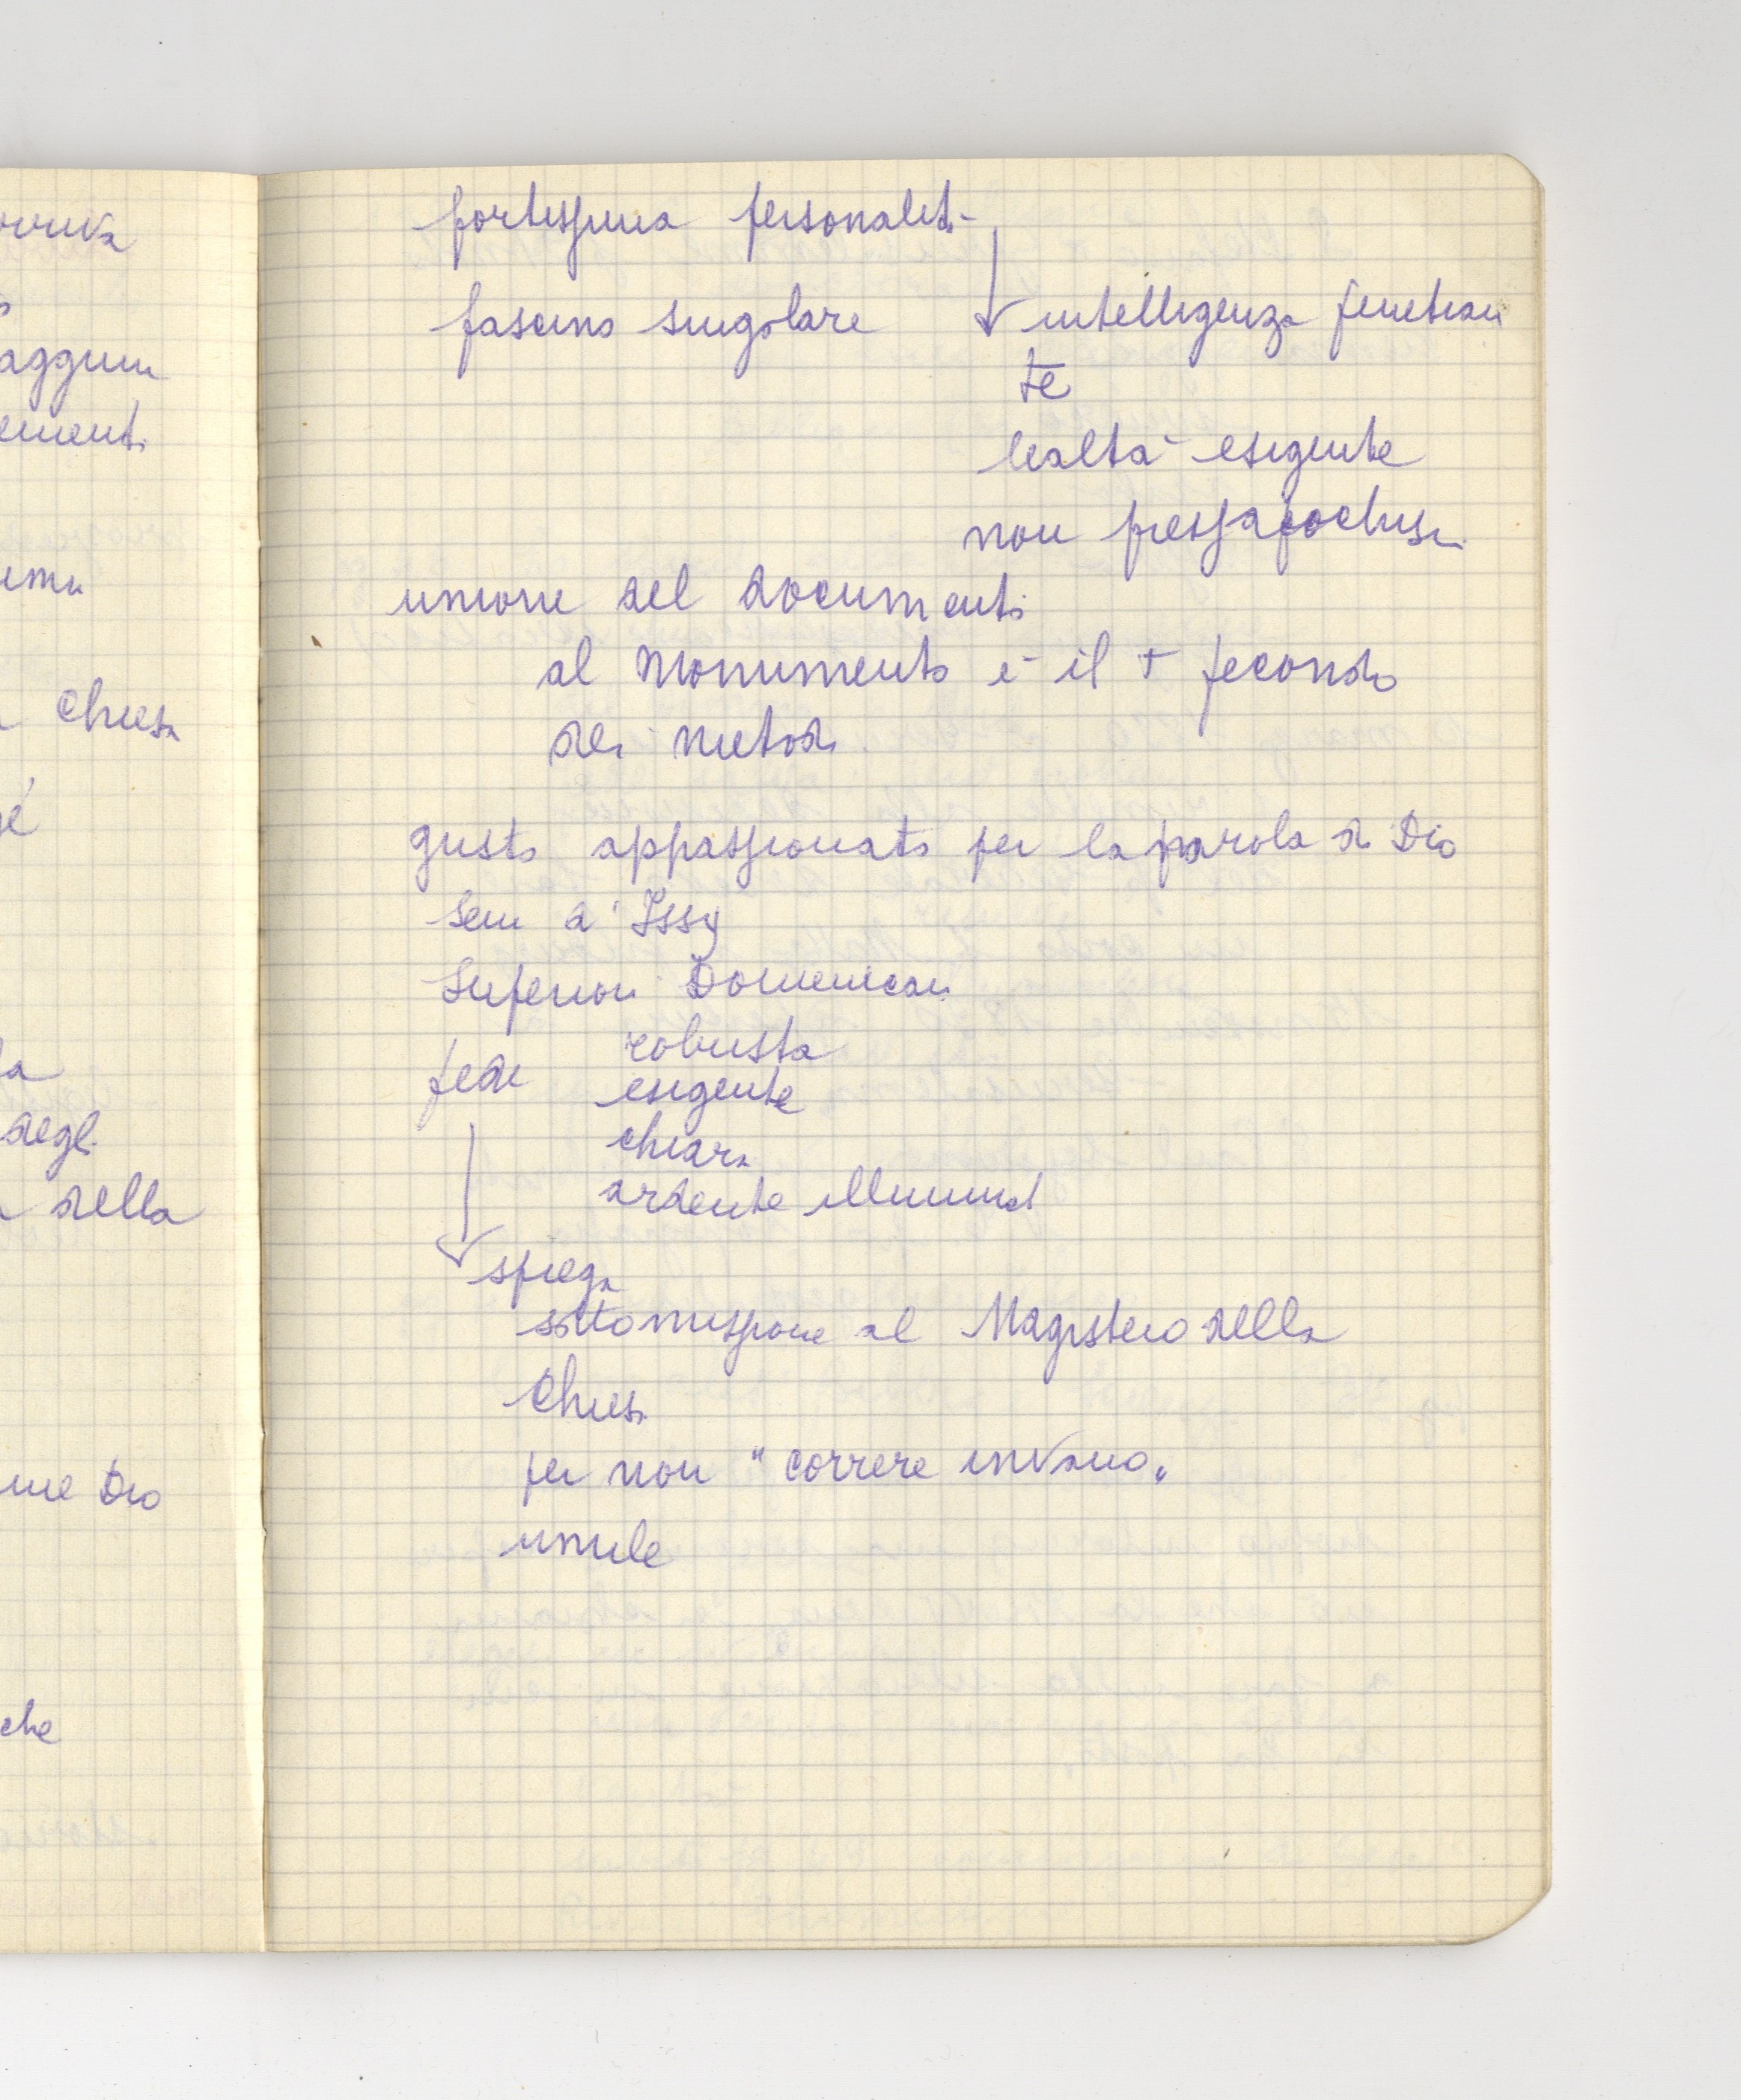 fortissima personalità
fascino singolare
intelligenza penetran
te
lealtà esigente
non pressapochismo
unione del documento
al Monumento è il + fecondo
dei metodi
gusto appassionato per la parola di Dio
Sem d'Issy
Superiori Domenicani
fede robusta
esigente
chiara
ardente illuminat
spiega
sottomissione al Magistero della
Chiesa
per non "correre invano"
umile
aggiun
ementi
Chiesa
la
degli
della
me Dio
che